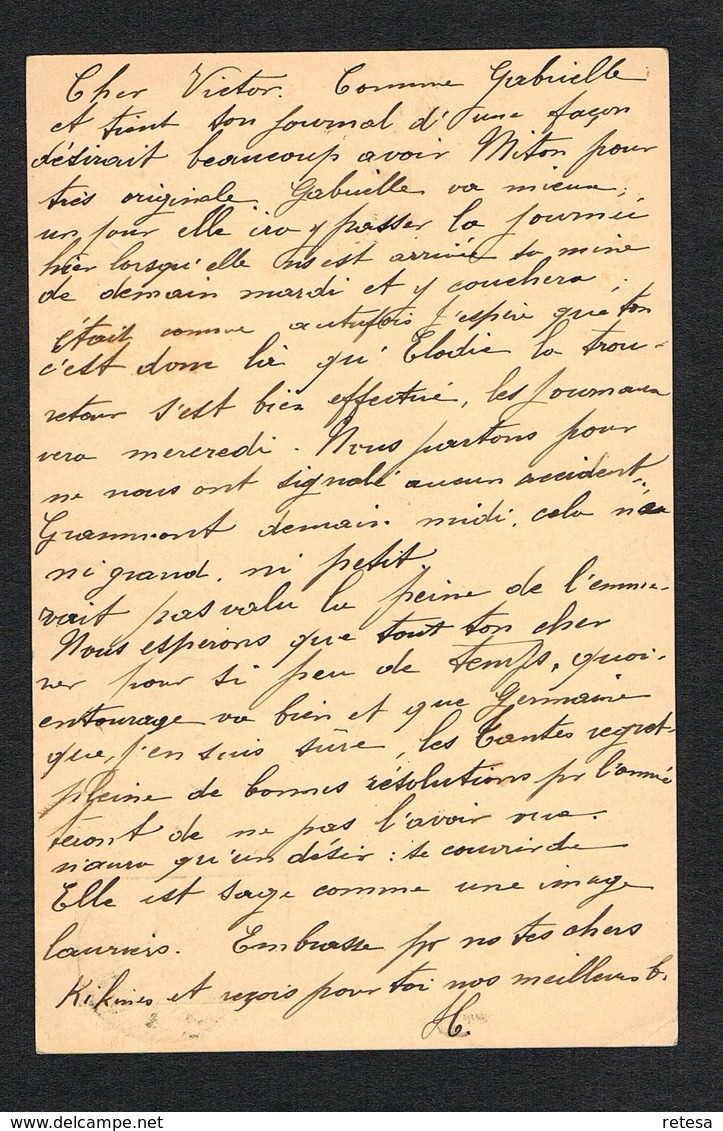 Cher Victor. Comme Gabrielle
et tient ton journal d'une façon
désirait beaucoup avoir Miton pour
très originale. Gabrielle va mieux,
un jour elle ira y passer la journée
hier lorsqu'elle ns est arrivée ta mine
de demain mardi et y couchera,
était comme autrefois j'espère que ton
c'est donc là qu'Elodie la trou-
retour s'est bien effectué, les journaux
vera mercredi. Nous partons pour
ne nous ont signalé aucun accident.
Grammont demain midi, cela n'au
ni grand, ni petit
rait pas valu la peine de l'emme-
Nous espérons que tout ton cher
ner pour si peu de temps, quoi-
entourage va bien et que Germaine
que, j'en suis sûre, les tantes regret-
pleine de bonnes résolutions pr l'année
teront de ne pas l'avoir vue.
n'aura qu'un désir : se couvrir de
Elle est sage comme une image
lauriers. Embrasse pr ns tes chers
Kikines et reçois pour toi nos meilleurs b.
H.
retesa